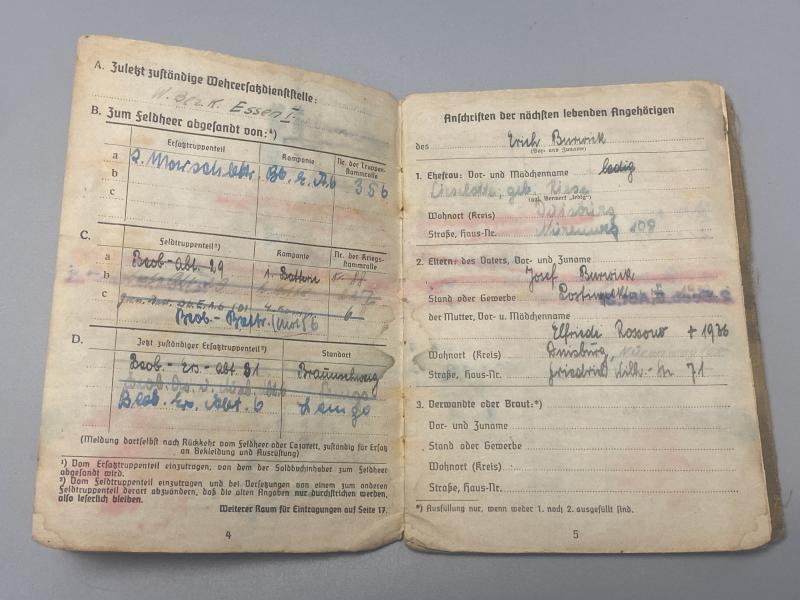 A. Zuletzt zuständige Wehrersatzdienststelle:
W. Bez. K. Essen I
B. Zum Feldheer abgesandt von:*)
Ersatztruppenteil Kompanie Nr. der Truppenstammrolle
a 2. Marsch Bttr. 356
b
c
C.
Feldtruppenteil²) Kompanie Nr. der Kriegsstammrolle
a Beob.-Abt. 29 1. Batterie Nr. 88
b
c 6
Beob.-Battr.
D.
Jetzt zuständiger Ersatztruppenteil²) Standort
Beob.-Ers.-Abt. 31 Braunschweig
Beob. Ers. Abt. 6 Lemgo
(Meldung dortselbst nach Rückkehr vom Feldheer oder Lazarett, zuständig für Ersatz
an Bekleidung und Ausrüstung)
¹) Vom Ersatztruppenteil einzutragen, von dem der Soldbuchinhaber zum Feldheer
abgesandt wird.
²) Vom Feldtruppenteil einzutragen und bei Versetzungen von einem zum anderen
Feldtruppenteil derart abzuändern, daß die alten Angaben nur durchstrichen werden,
also leserlich bleiben.
Weiterer Raum für Eintragungen auf Seite 17.
4
Anschriften der nächsten lebenden Angehörigen
des Erich Burwick
(Vor- und Zuname)
1. Ehefrau: Vor- und Mädchenname ledig
Lieselotte, geb. Riese
(ggf. Vermerk „ledig")
Wohnort (Kreis) Duisburg
Straße, Haus-Nr. 108
2. Eltern: des Vaters, Vor- und Zuname
Josef Burwick
Stand oder Gewerbe
der Mutter, Vor- u. Mädchenname
Elfriede Rossow + 1936
Wohnort (Kreis) Duisburg,
Straße, Haus-Nr. Friedrich Wilh.-Str 71
3. Verwandte oder Braut:*)
Vor- und Zuname
Stand oder Gewerbe
Wohnort (Kreis)
Straße, Haus-Nr.
*) Ausfüllung nur, wenn weder 1. noch 2. ausgefüllt sind.
5